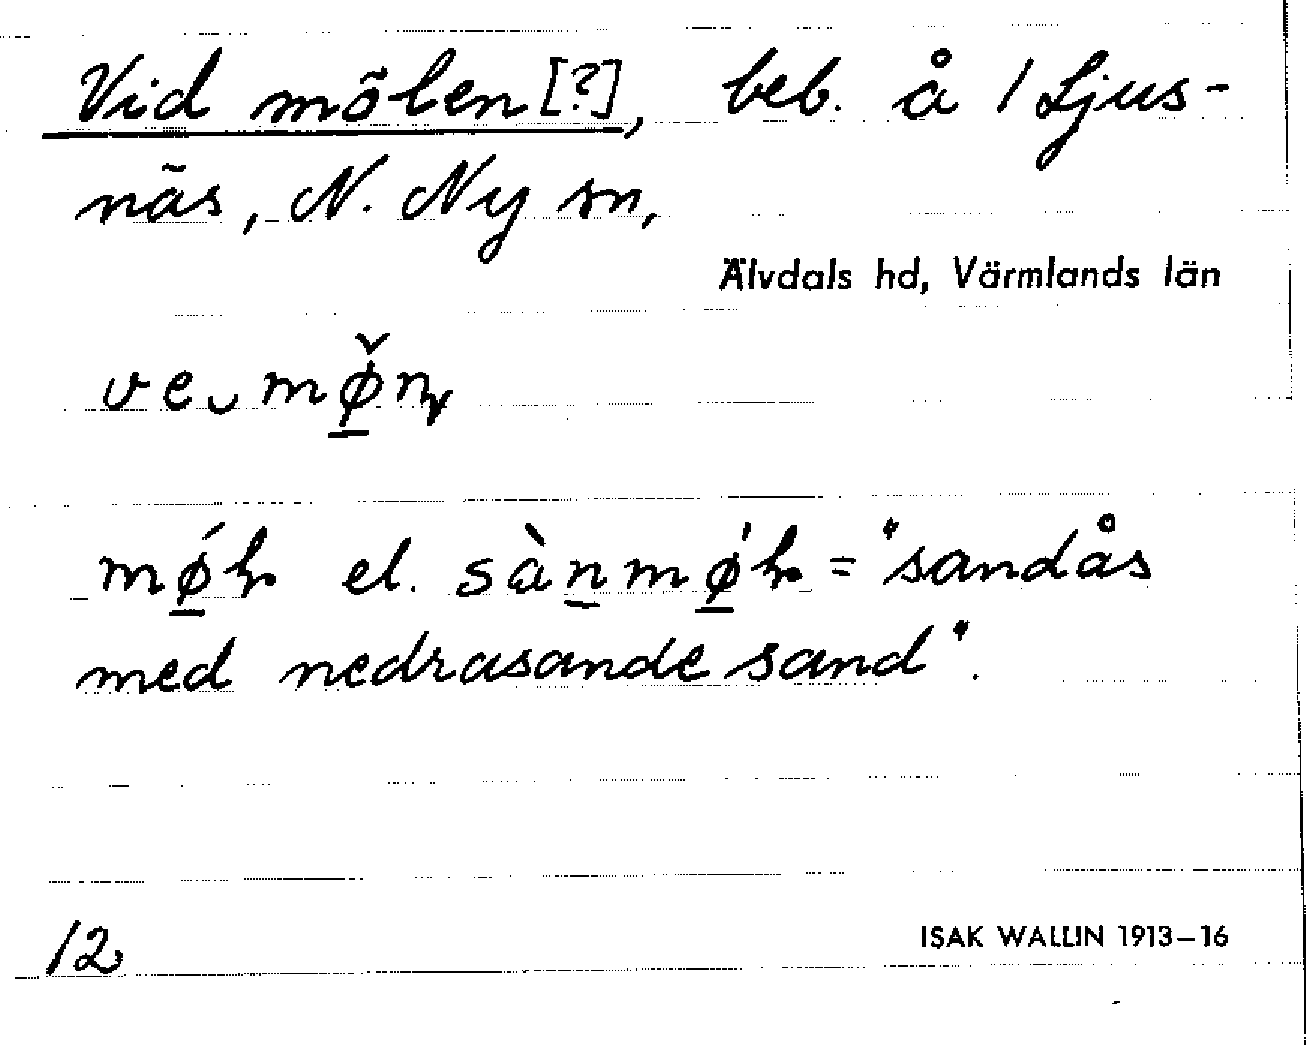 Vid mölen [?], beb. å 1 Ljus-
näs, N. Ny sn,
Älvdals hd, Värmlands län
ve
el.
= "sandås
med nedrasande sand".
12
ISAK WALLIN 1913–16